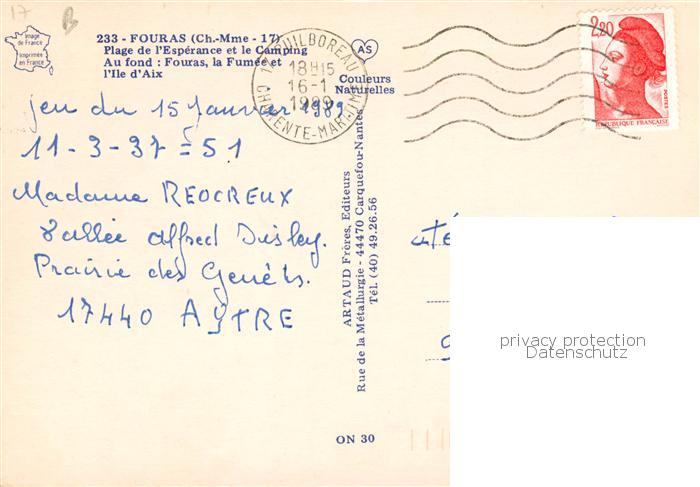 17
Image
de France
Imprimée
en France
233 - FOURAS (Ch.-Mme - 17)
Plage de l'Espérance et le Camping
Au fond : Fouras, la Fumée et
l'Ile d'Aix
AS
Couleurs
Naturelles
17 PUILBOREAU
18H15
16-1
1989
CHARENTE-MARITIME
2,20
POSTES
REPUBLIQUE FRANÇAISE
jeu du 15 Janvier 1989
11-3-37=51
Madame REOCREUX
Vallée Alfred Sisley.
Prairie des Genêts.
17440 AYTRE
ARTAUD Frères, Editeurs
Rue de la Métallurgie - 44470 Carquefou-Nantes
Tél. (40) 49.26.56
ON 30
privacy protection
Datenschutz